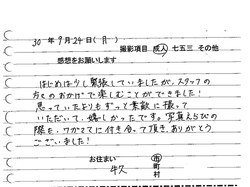 30年9月24日(月)
撮影項目 成人 七五三 その他
感想をお願いします
はじめは少し緊張していましたが、スタッフの
方々のおかげで楽しむことができました!
思っていたよりもずっと素敵に撮って
いただいて、嬉しかったです。写真えらびの
際も、ワガママに付き合って頂き、ありがとう
ございました!
お住まい
市
町
村